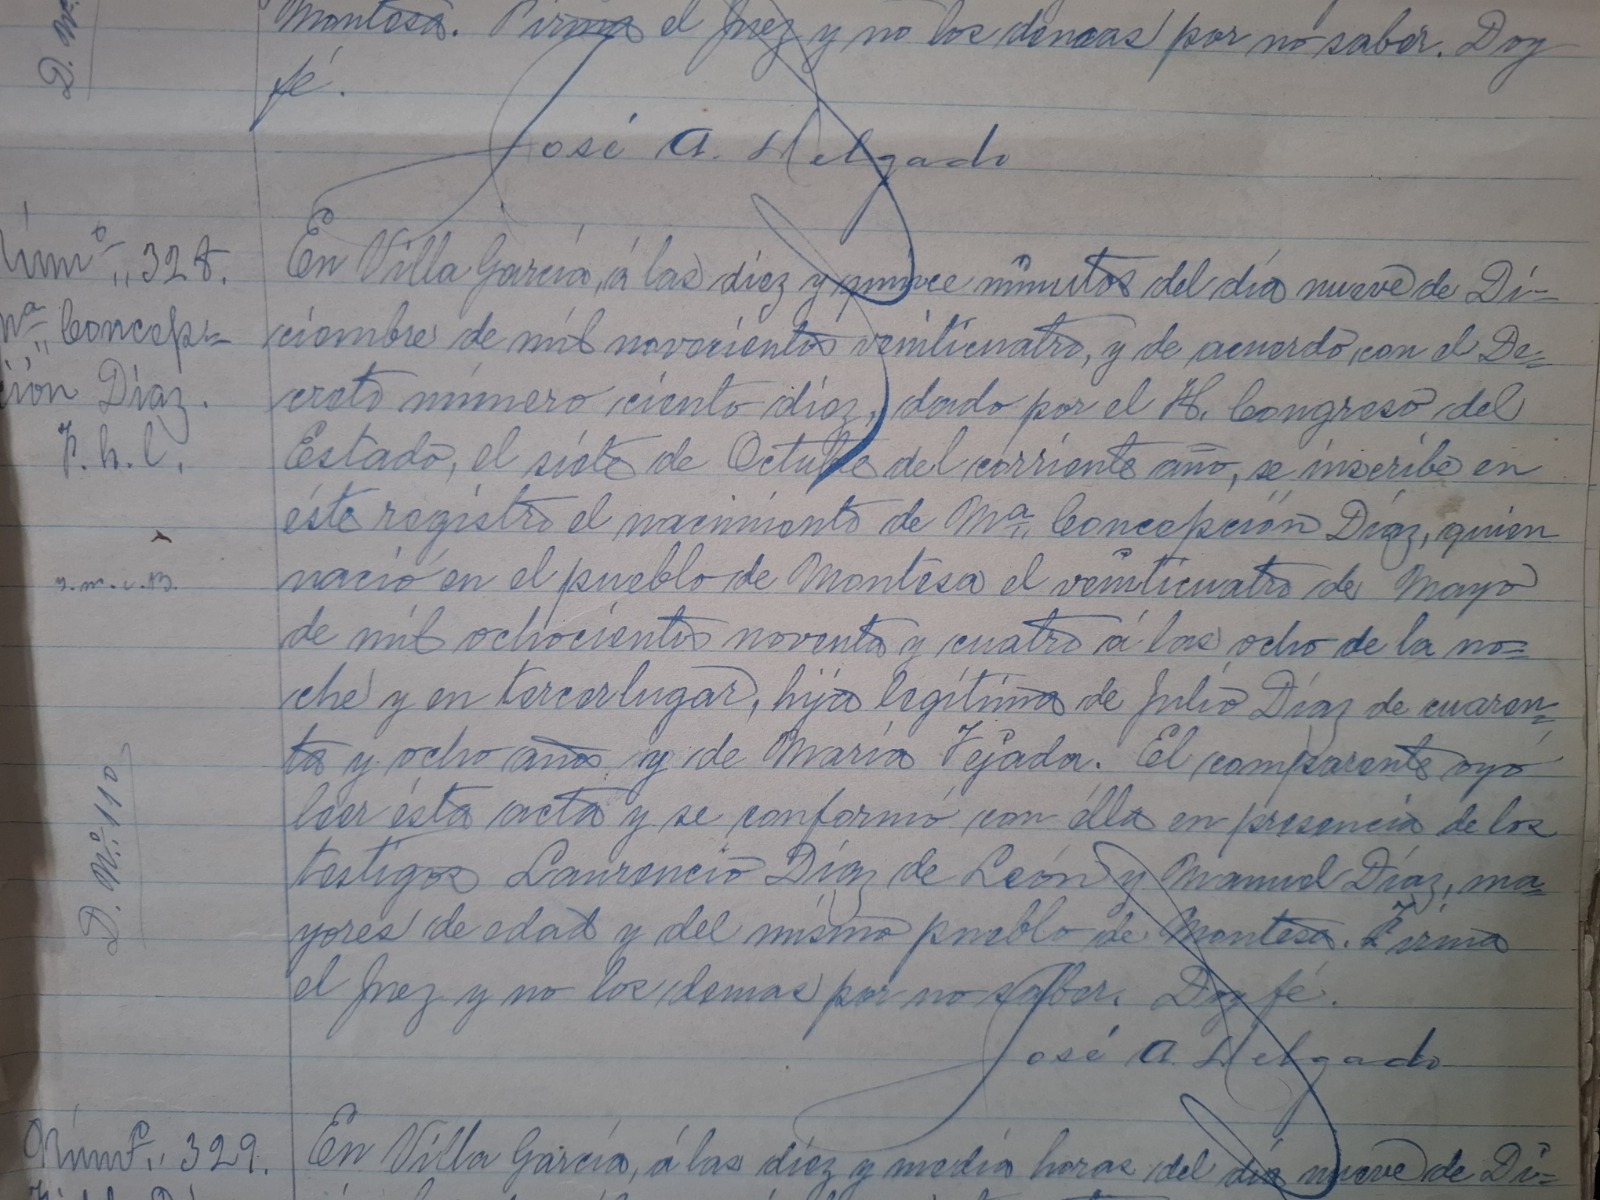 Montesa. Firma el Juez y no los demas por no saber. Doy
fé.
José A. Delgado
Núm.º 328.
Mª Concep-
ción Díaz.
F. h. l.
D. Nº. 110
En Villa García, á las diez y quince minutos del día nueve de Di-
ciembre de mil novecientos veinticuatro, y de acuerdo con el De-
creto número ciento diez, dado por el H. Congreso del
Estado, el siete de Octubre del corriente año, se inscribe en
éste registro el nacimiento de Mª Concepción Díaz, quien
nació en el pueblo de Montesa el veinticuatro de Mayo
de mil ochocientos noventa y cuatro á las ocho de la no-
che y en tercer lugar, hija legítima de Julio Díaz de cuaren-
ta y ocho años y de María Tejada. El comparente oyó
leer ésta acta y se conformó con élla en presencia de los
testigos Laurencio Díaz de León y Manuel Díaz, ma-
yores de edad y del mismo pueblo de Montesa. Firma
el Juez y no los demas por no saber. Doy fé.
José A. Delgado
Núm.º 329.
En Villa García, á las diez y media horas del día nueve de Di-